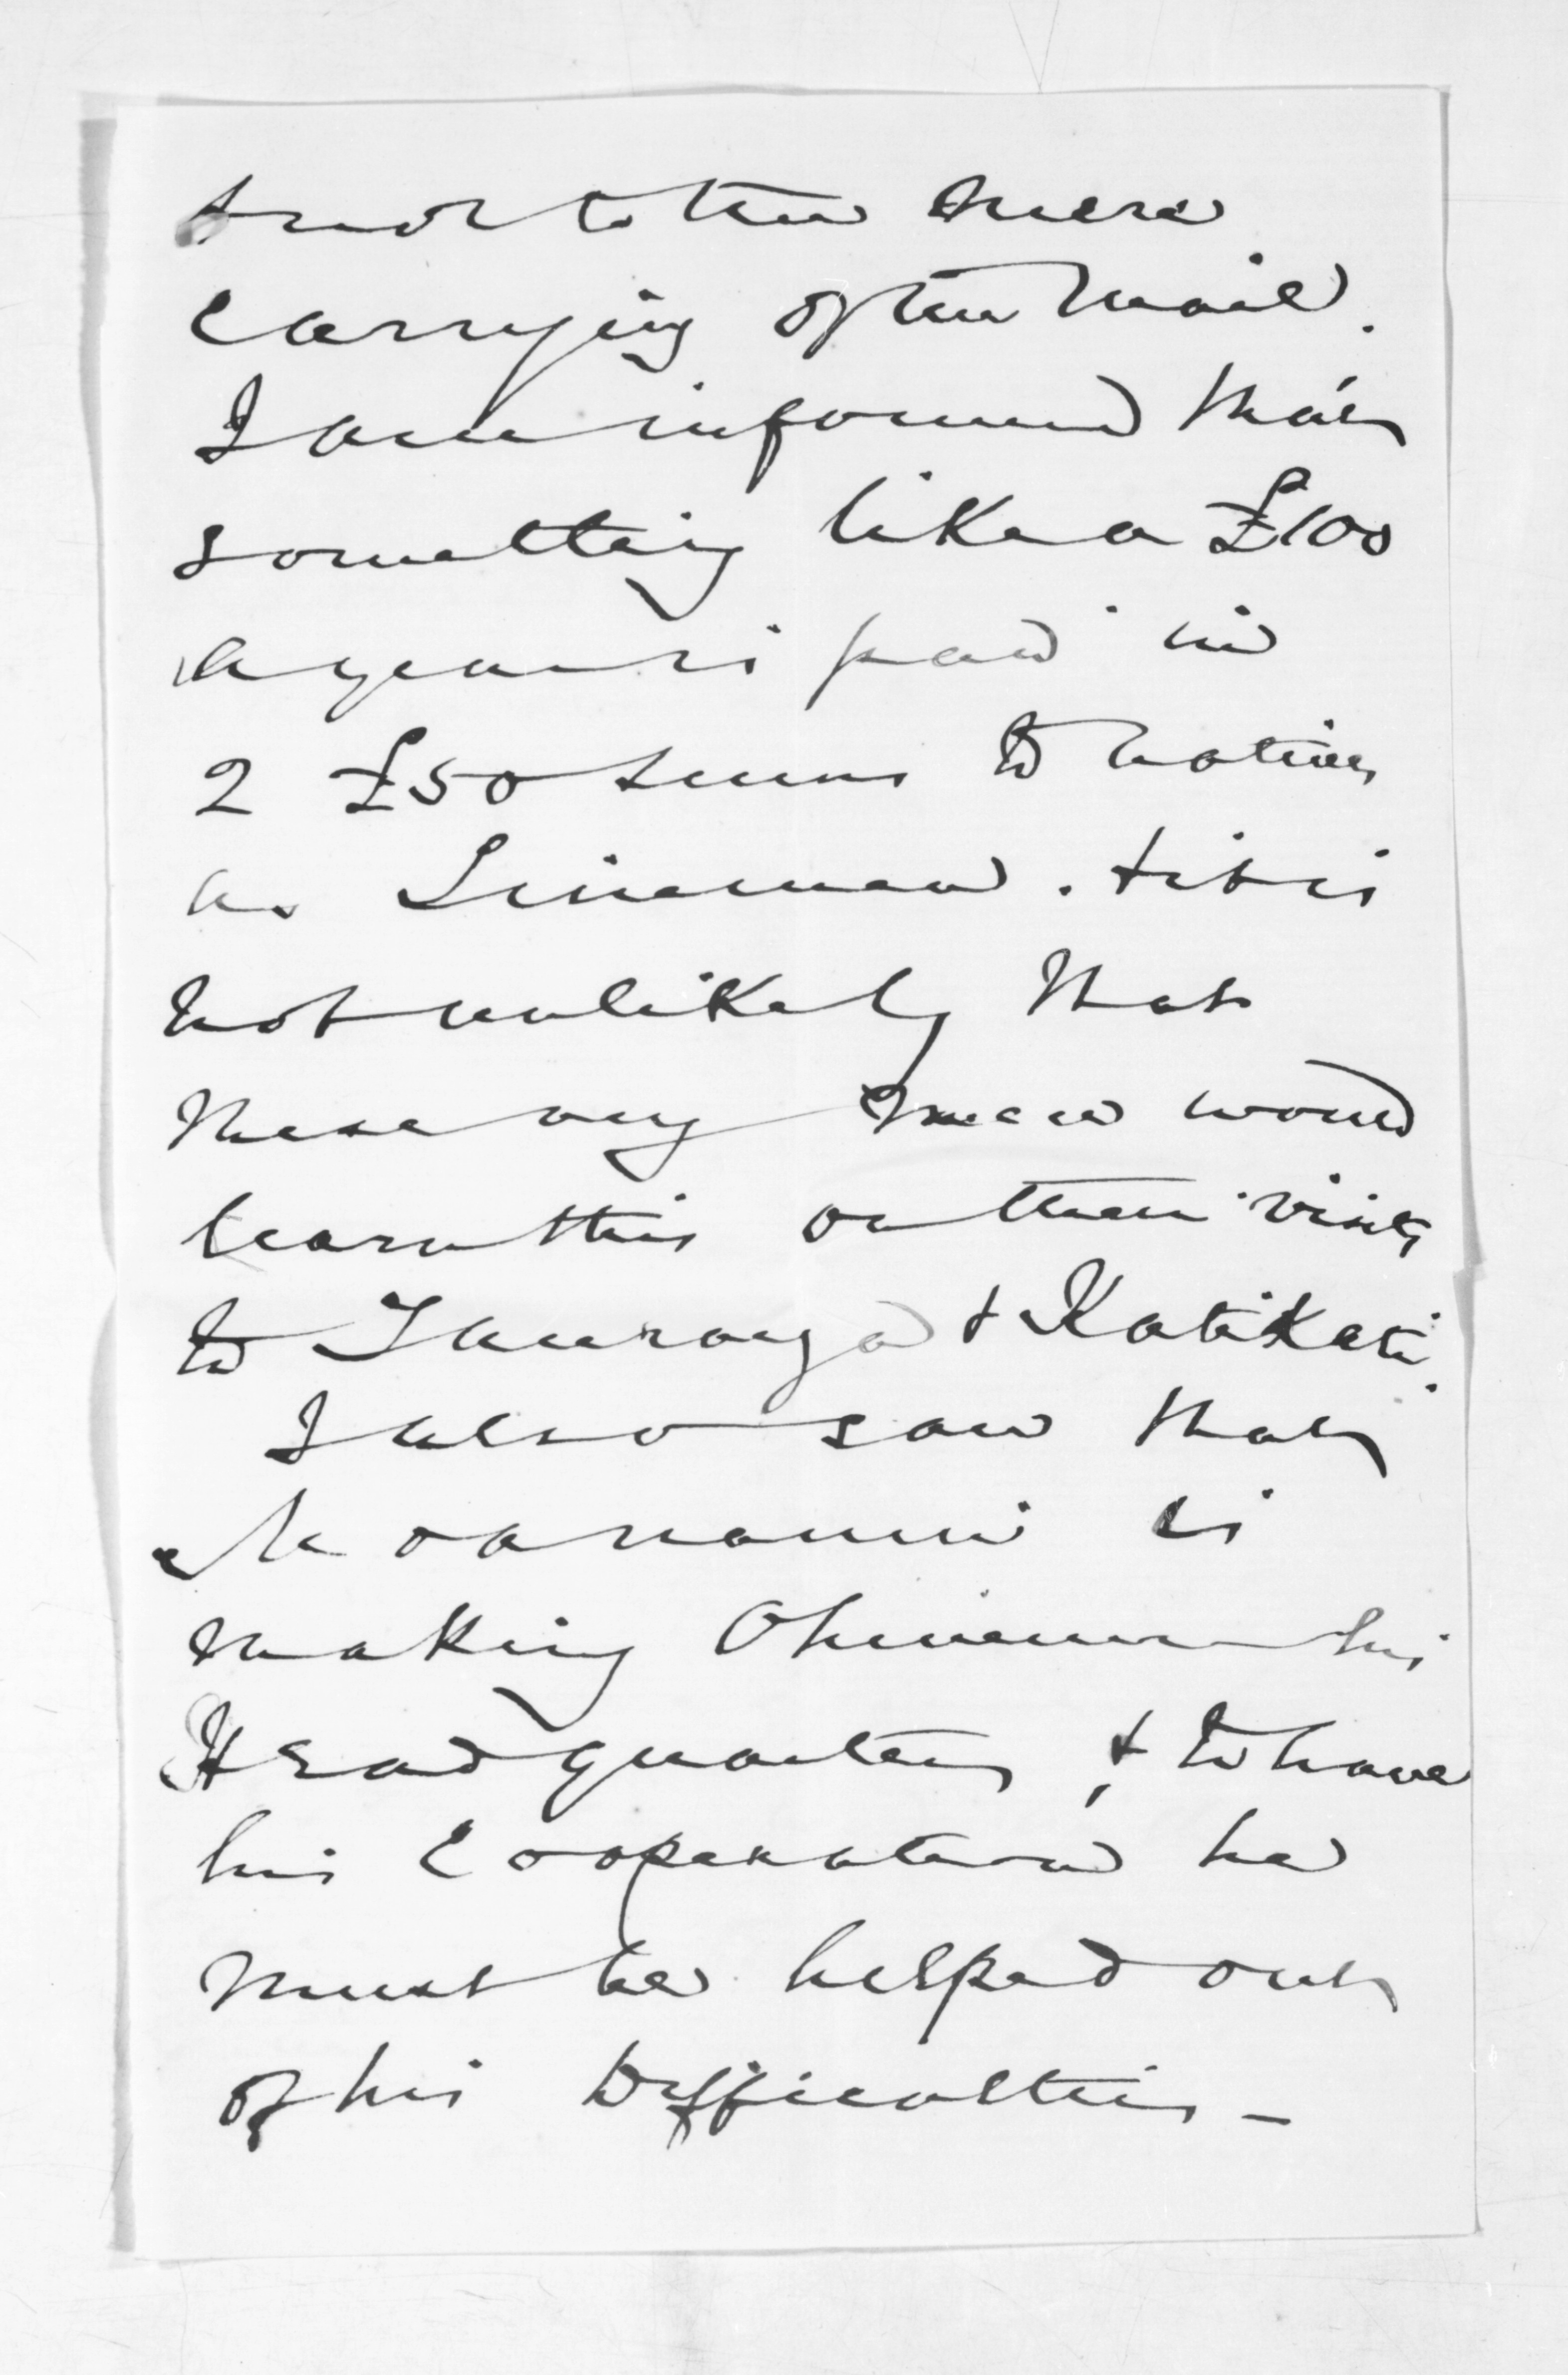 & not to the mere
carrying of the mail.
I am informed that
something like a £100
a year is paid in
2 £50 sums to natives
as Linemen. & it is
not unlikely that
these men would
learn this on their visits
to Tauranga & Katikati.
I also saw that
is
making Ohinemuri his
Head quarters, & to have
his Cooperation he
must be helped out
of his Difficulties -